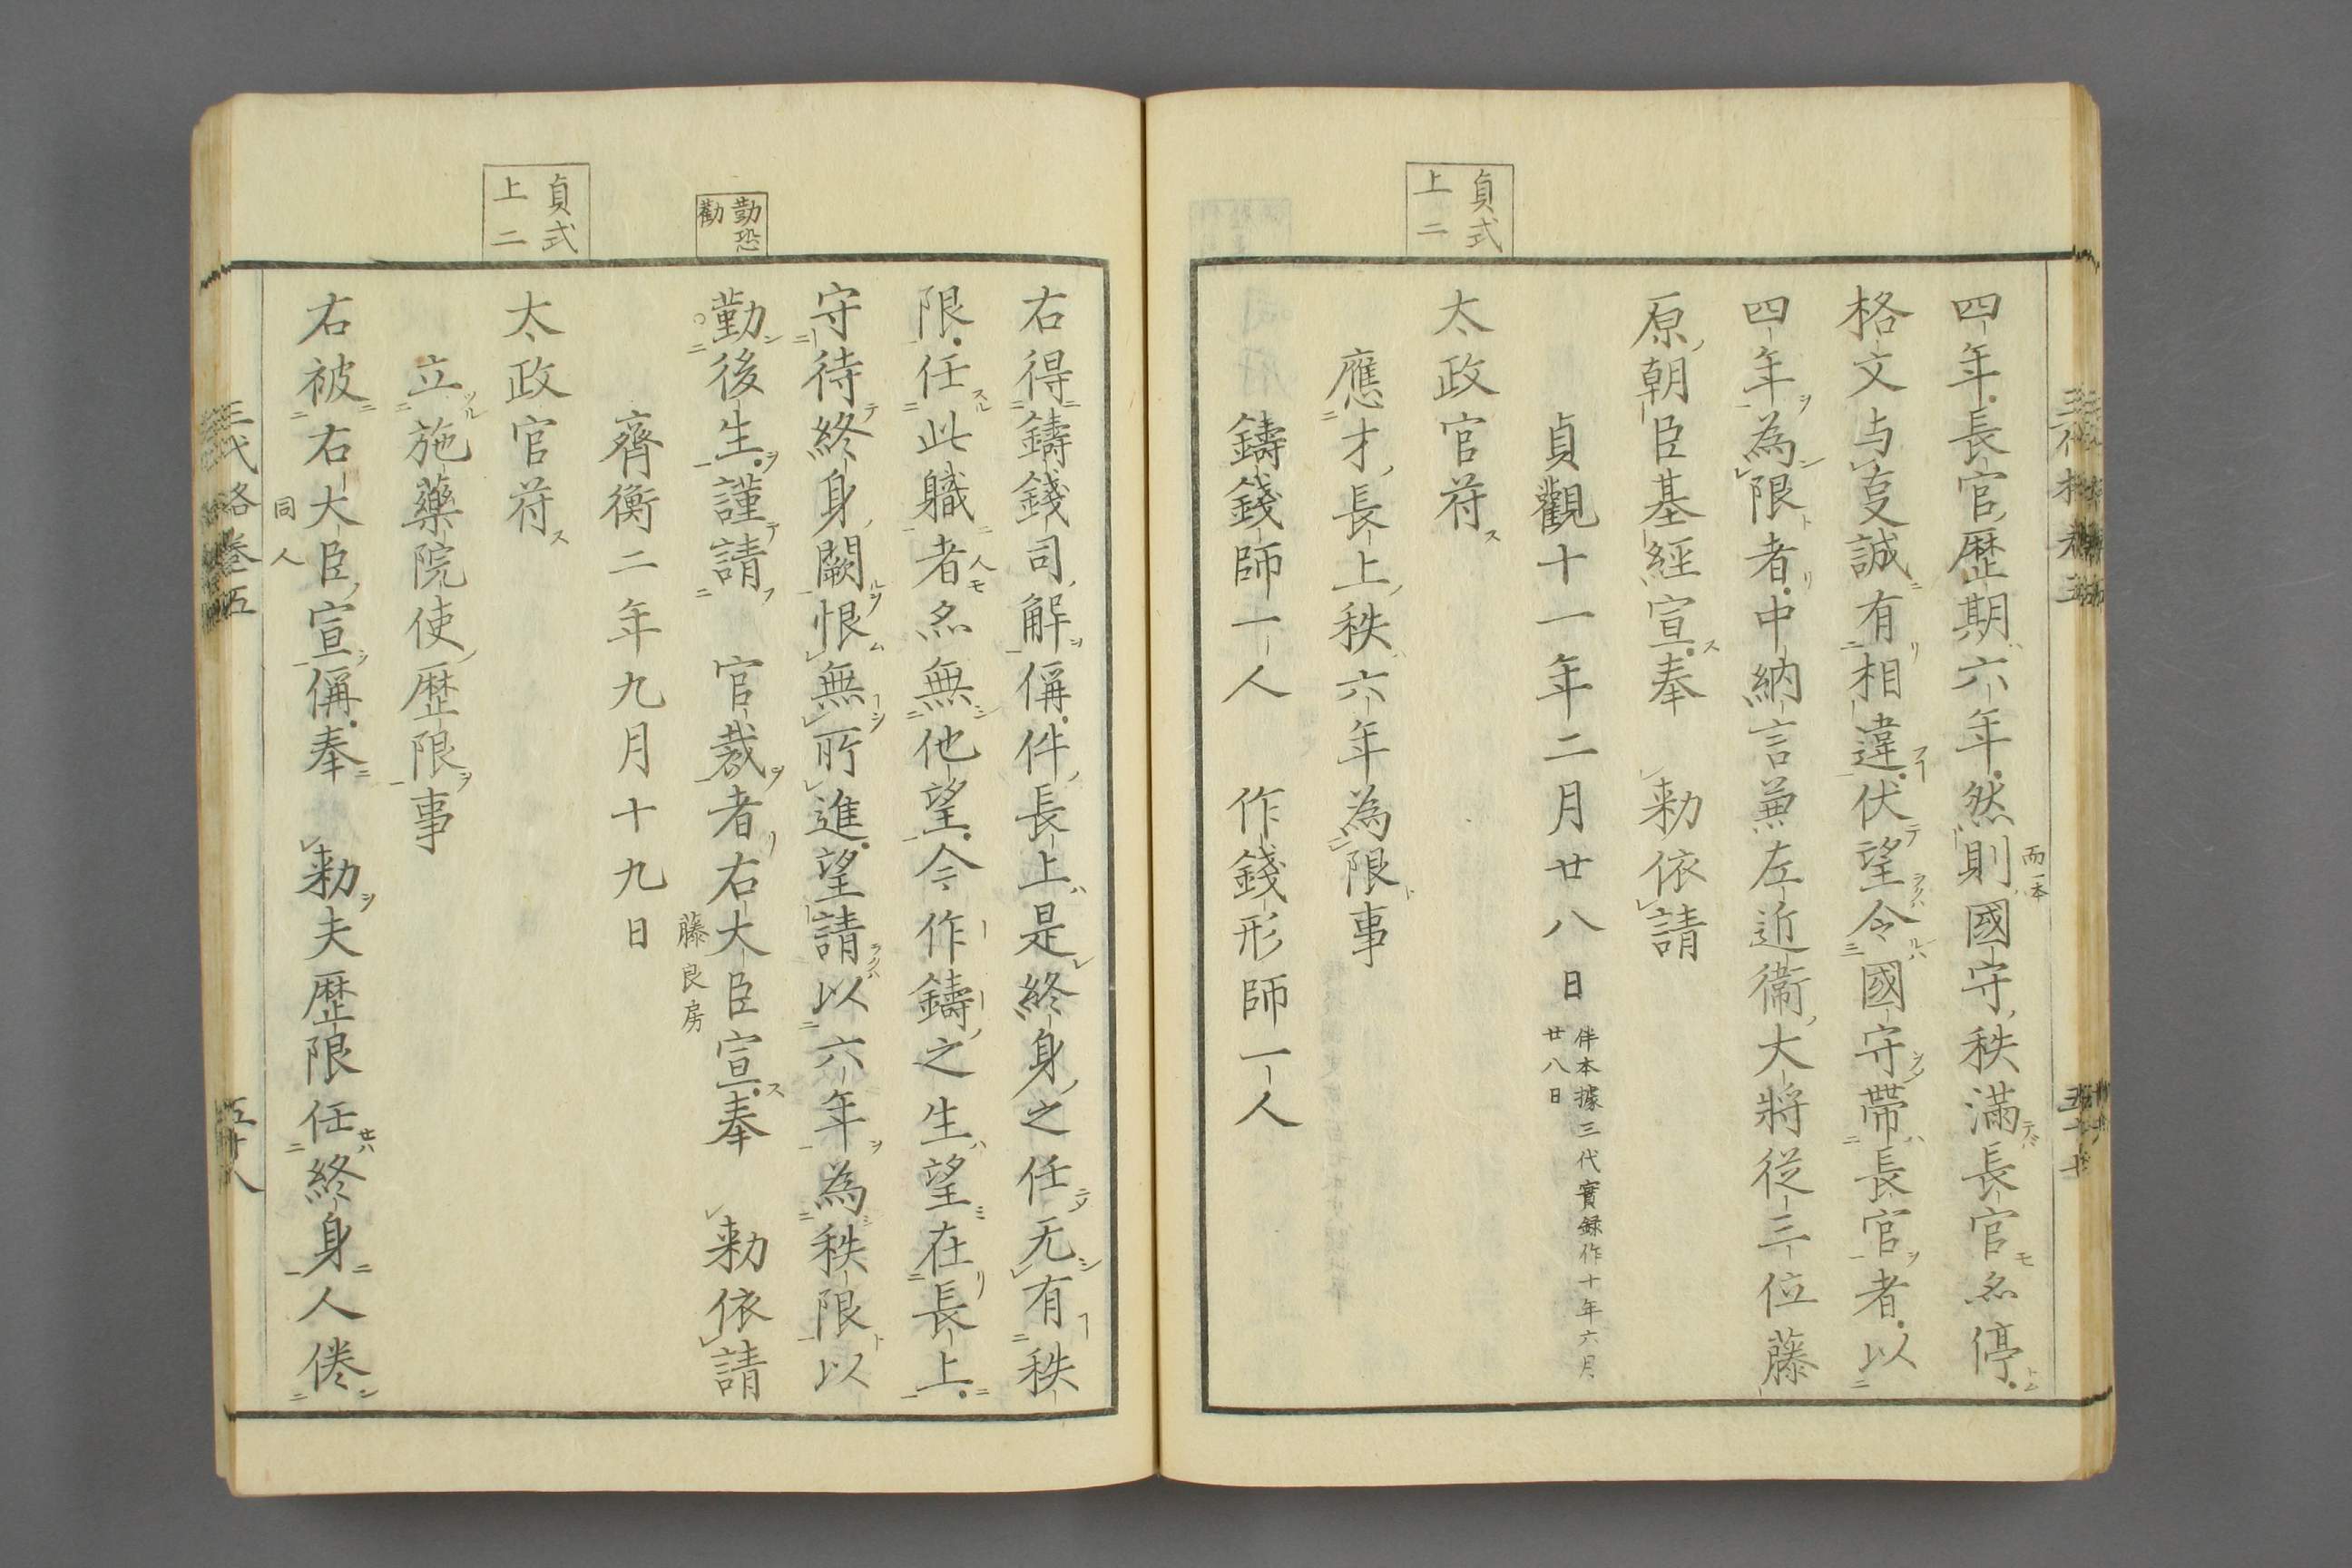 貞式
上二
四年長官歴期六年然則國守秩滿長官亦停
而一本
格文与㕝誠有相違伏望令國守帶長官者以
四年為限者中納言兼左近衞大將從三位藤
原朝臣基經宣奉　勑依請
貞觀十一年二月廿八日
伴本據三代實録作十年六月
廿八日
太政官符ス
應才長上秩六年為限事
鑄錢師一人　作錢形師一人
勤恐
勸
貞式
上二
右得鑄錢司解偁件長上是終身之任无有秩
限任此職者亦無他望今作鑄之生望在長上
守待終身闕恨無所進望請以六年為秩限以
勤後生謹請　官裁者右大臣宣奉　勑依請
藤良房
齊衡二年九月十九日
太政官符ス
立施藥院使歴限事
右被右大臣宣偁奉　勑夫歴限任終身人倦
同人
三代格巻五
五十八